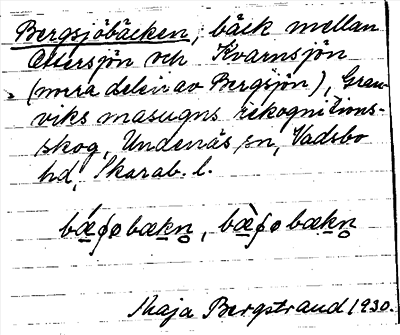 Bergsjöbäcken, bäck mellan
Ottersjön och Kvarnsjön
(norra delen av Bergsjön), Gran-
viks masugns rekognitions-
skog, Undenäs sn, Vadsbo
hd, Skarab. l.
Maja Bergstrand 1930.